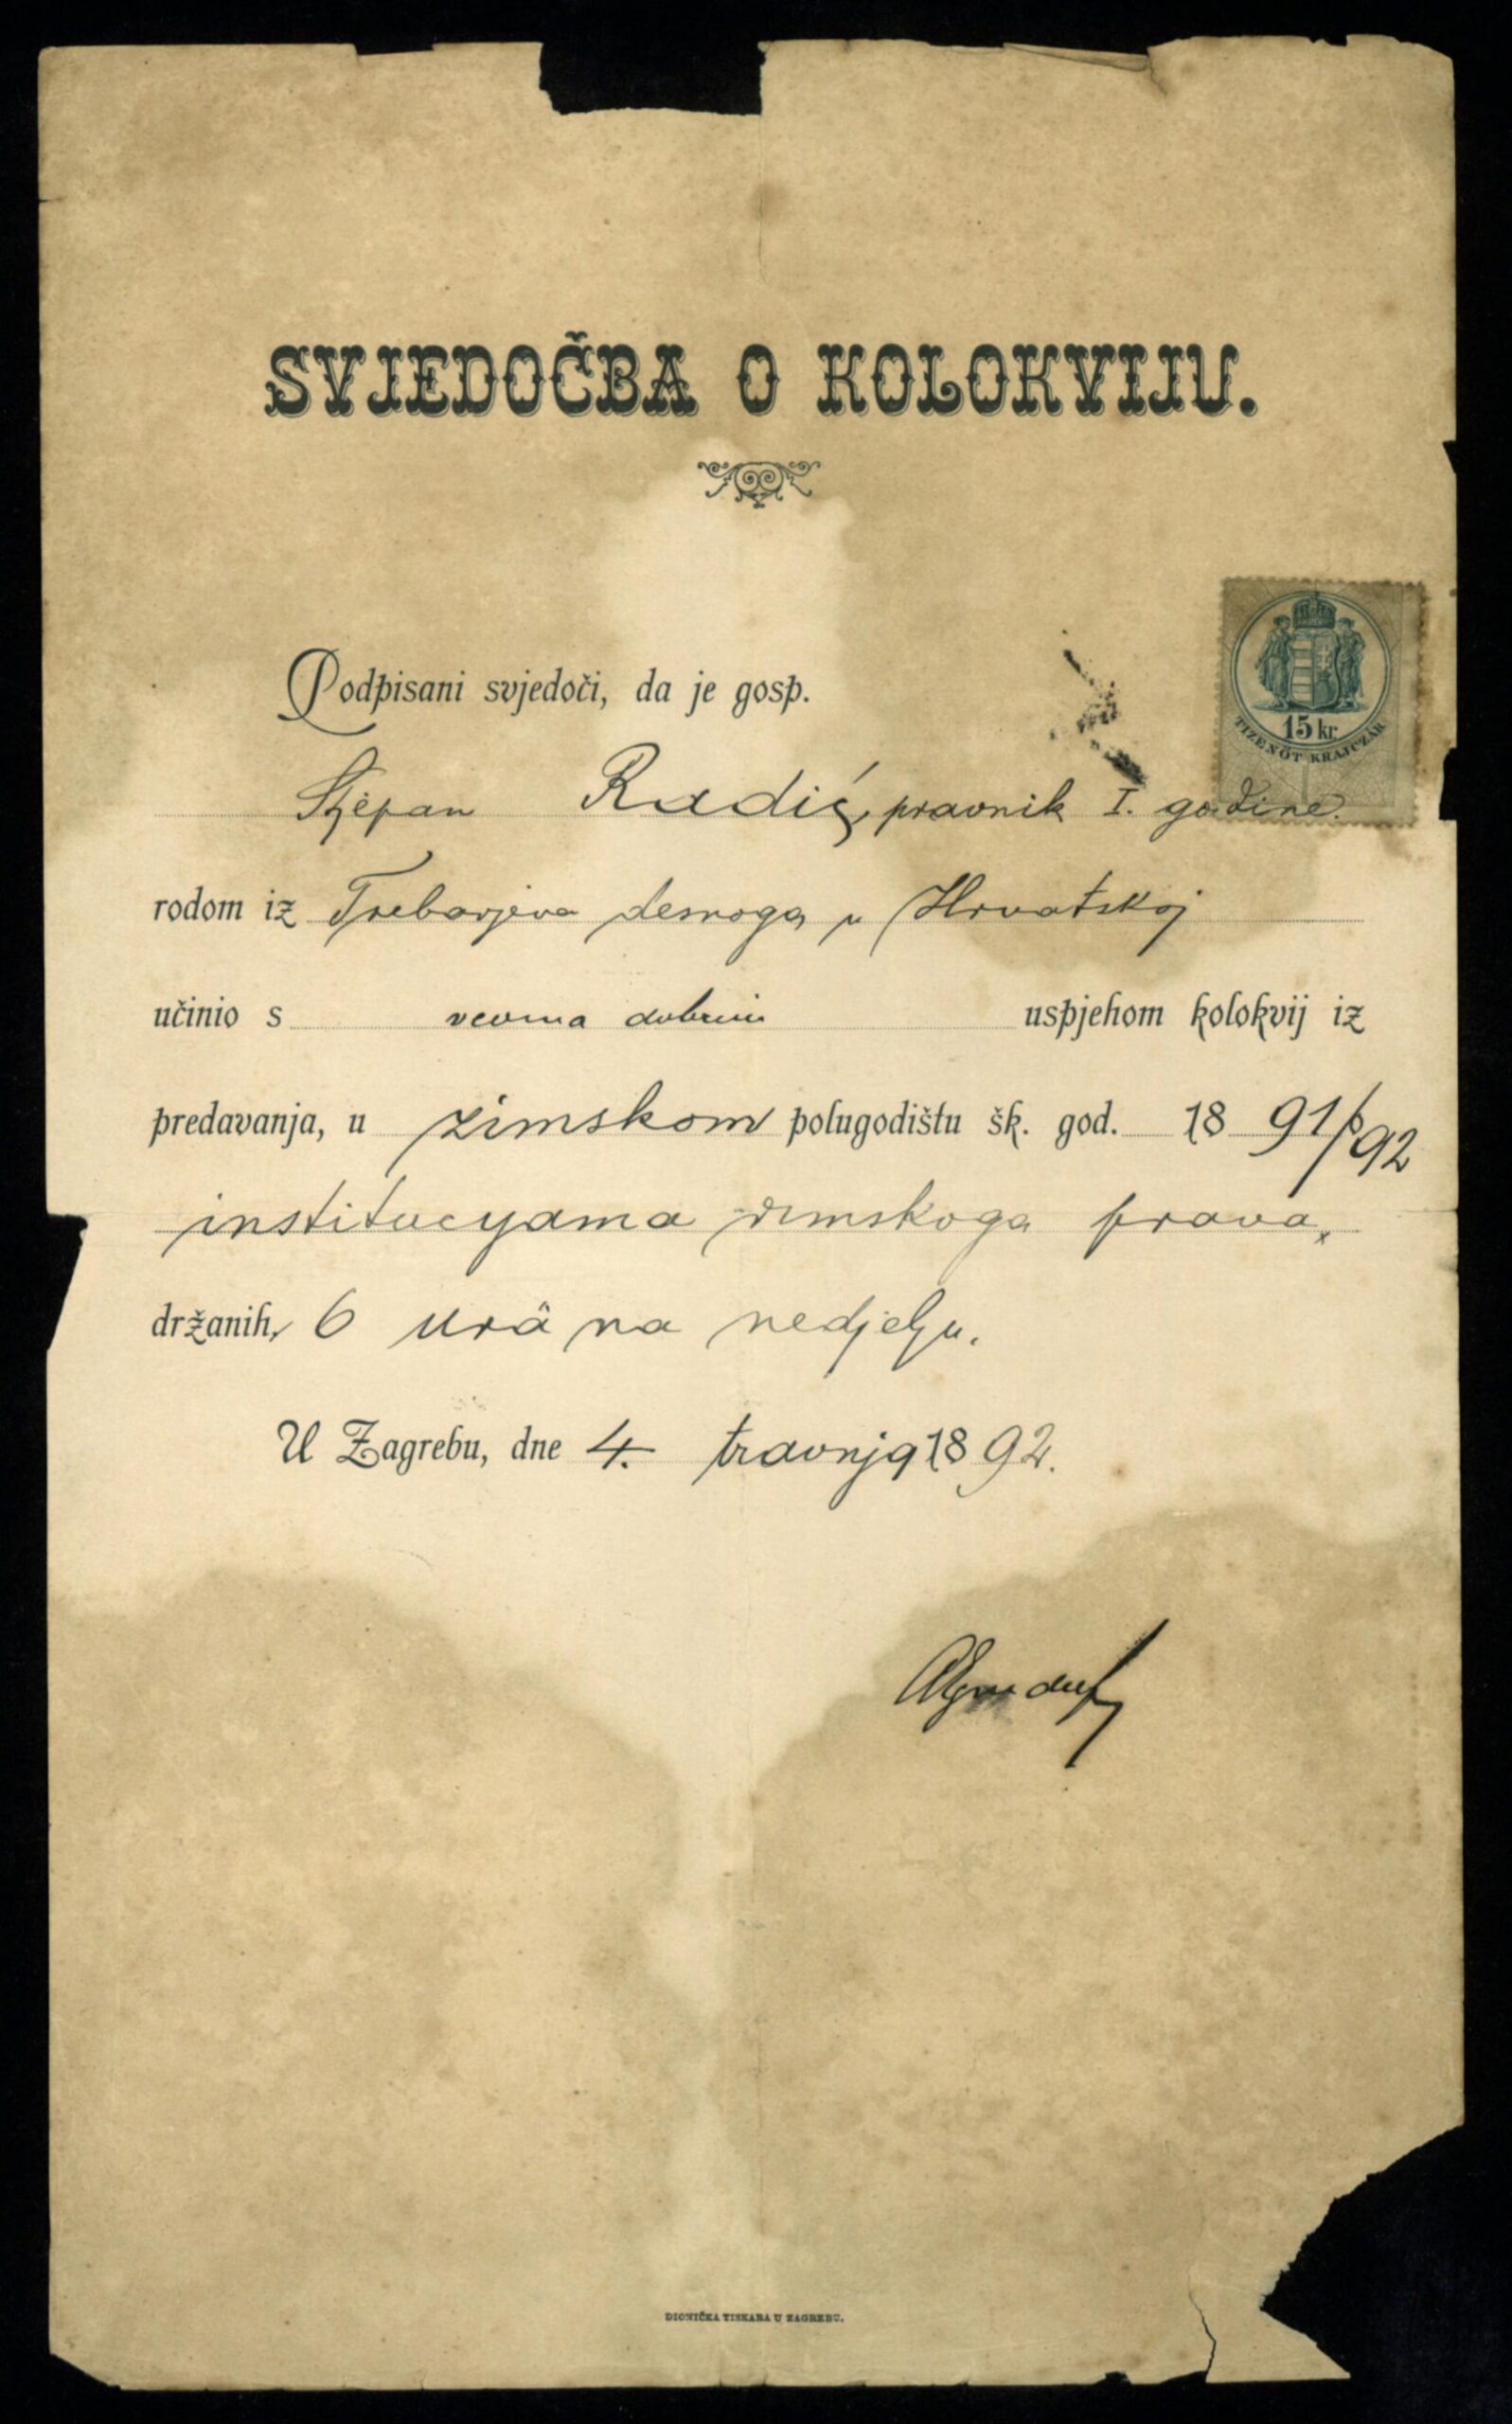 SVJEDOČBA O KOLOKVIJU.
Podpisani svjedoči, da je gosp.
15 kr
TIZENÖT KRAJCZÁR
Stjepan Radić, pravnik I. godine.
rodom iz Trebarjeva desnoga u Hrvatskoj
učinio s veoma dobrim uspjehom kolokvij iz
predavanja, u zimskom polugodištu šk. god. 18 91/92
institucijama rimskoga prava,
držanih, 6 urâ na nedjelju.
U Zagrebu, dne 4. travnja 1892.
DIONIČKA TISKARA U ZAGREBU.